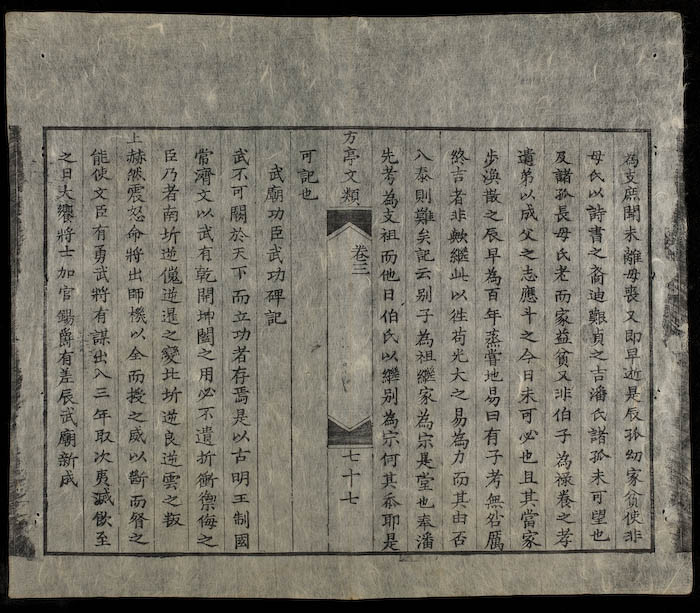 為支庶聞未離母喪又即早逝是辰孤幼家貧使非
母氏以詩書之裔迪艱貞之吉潘氏諸孤未可望也
及諸孤長母氏老而家益貧又非伯子為祿養之孝
遺弟以成父之志應斗之今日未可必也且其當家
步渙散之辰早為百年蒸嘗地易曰有子考無咎厲
終吉者非歟繼此以徃苟光大之易為力而其由否
入泰則難矣記云别子為祖繼家為宗是堂也奉潘
先考為支祖而他日伯氏以繼别為宗何其忝耶是
方亭文類
卷三
七十七
可記也
武廟功臣武功碑記
武不可闕於天下而立功者存焉是以古明王制國
當濟文以武有乾開坤闔之用必不遺折衝禦侮之
臣乃者南圻逆𠐤逆暹之變北圻逆良逆雲之叛
上赫然震怒命將出師機以全而授之威以斷而督之
能使文臣有勇武將有謀出入三年取次夷滅飲至
之日大饗將士加官錫爵有差辰武廟新成